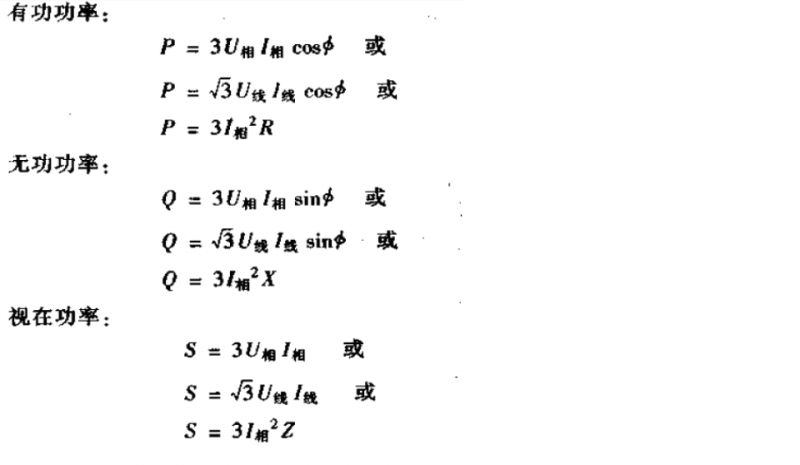 有功功率：
P = 3U相 I相 cosϕ 或
P = √3 U线 I线 cosϕ 或
P = 3I相²R
无功功率：
Q = 3U相 I相 sinϕ 或
Q = √3 U线 I线 sinϕ 或
Q = 3I相²X
视在功率：
S = 3U相 I相 或
S = √3 U线 I线 或
S = 3I相²Z